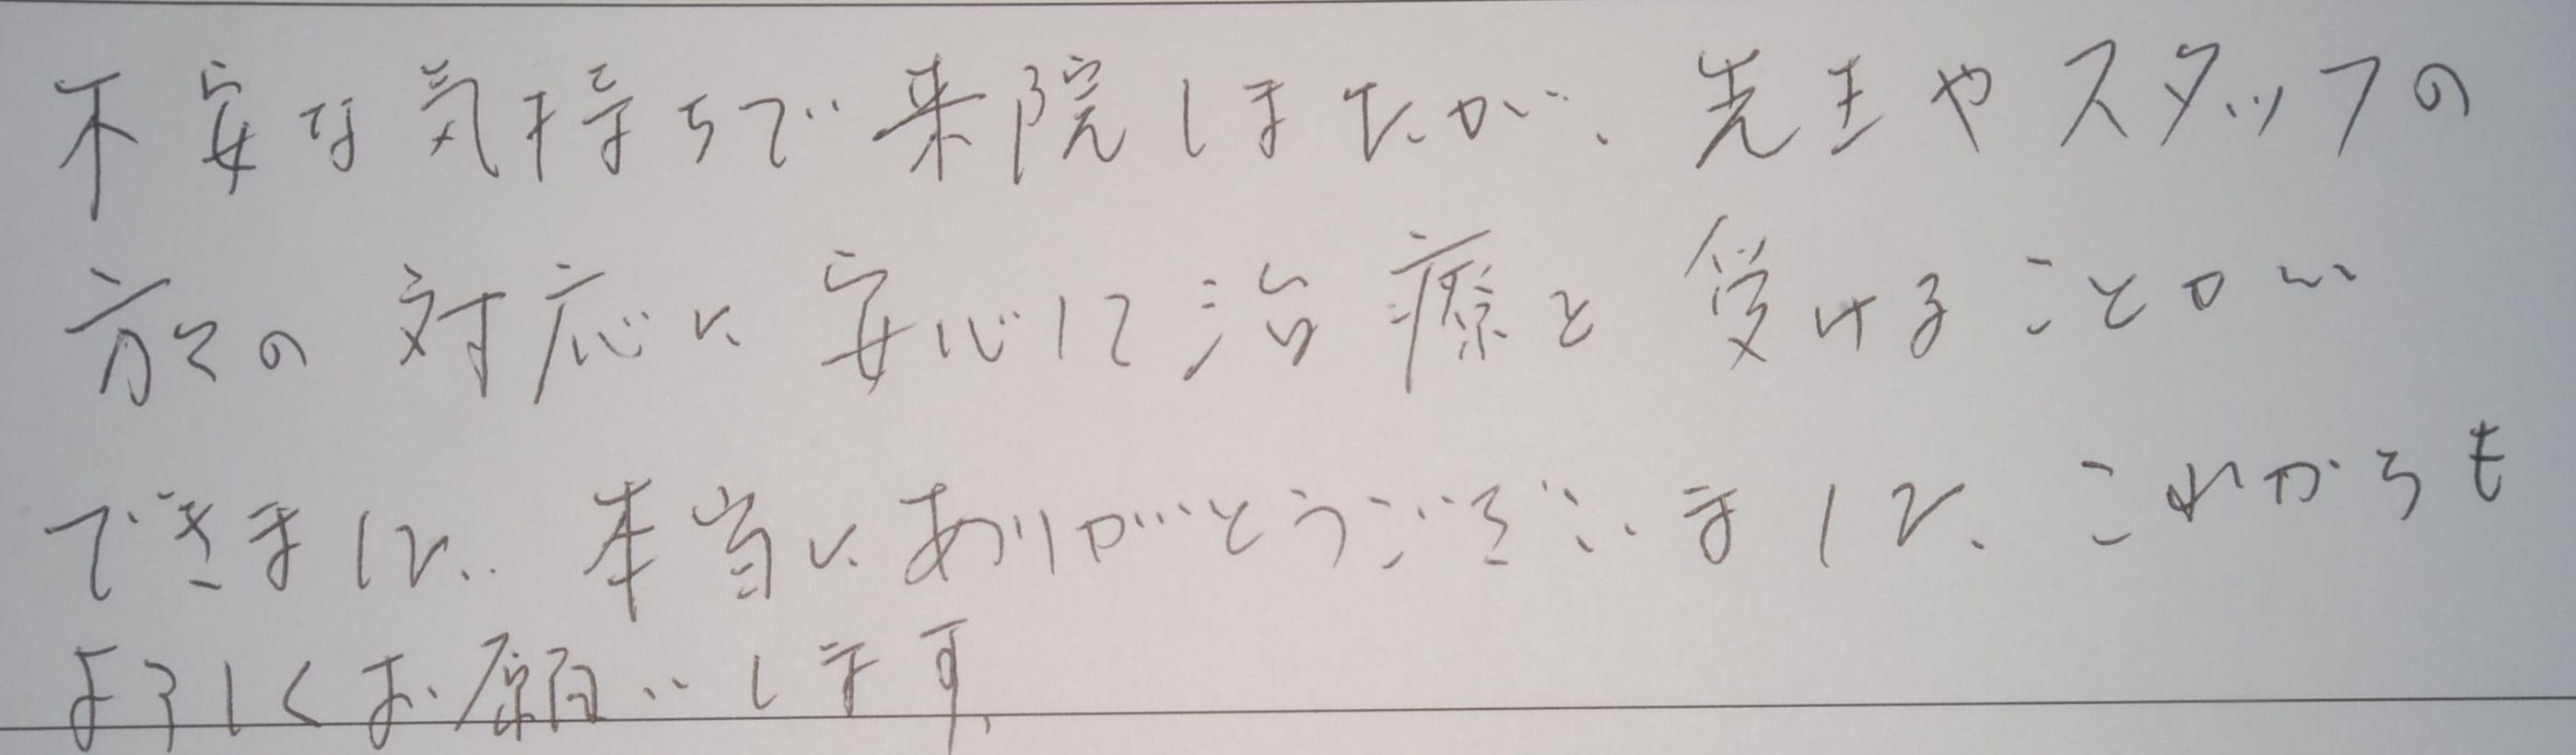 不安な気持ちで来院しましたが、先生やスタッフの
方々の対応に安心して治療を受けることが
できました。本当にありがとうございました。これからも
よろしくお願いします。